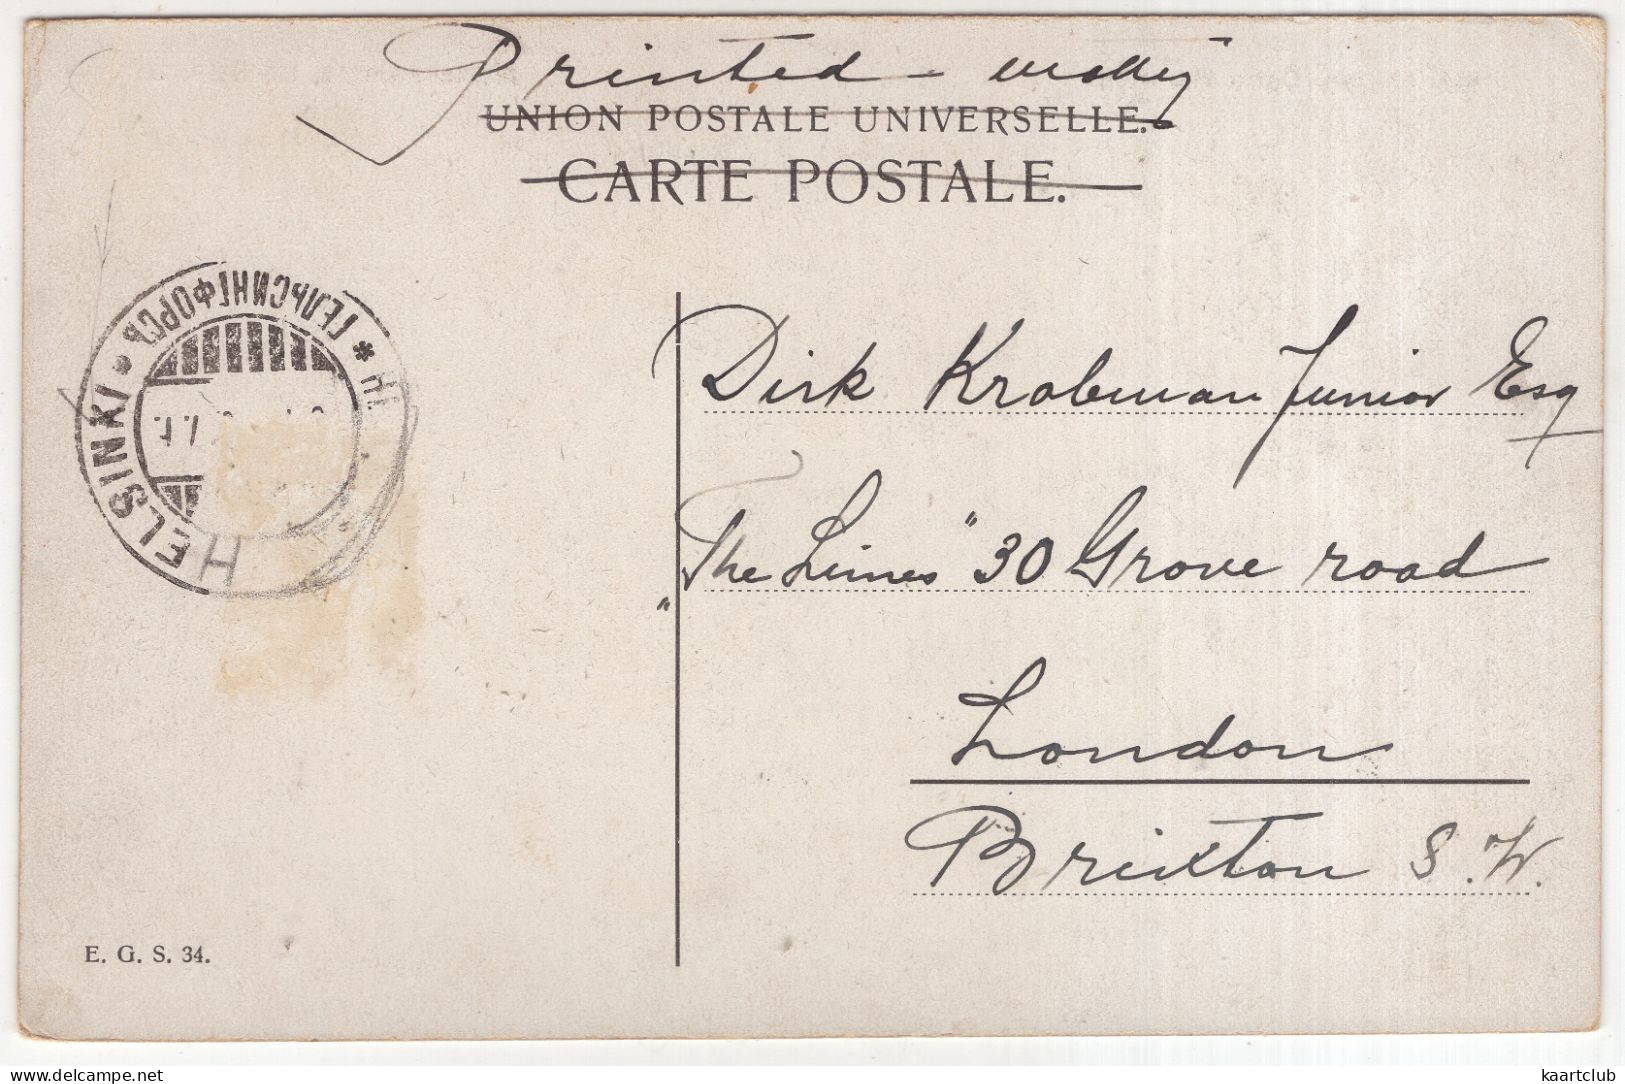 Printed - matter
UNION POSTALE UNIVERSELLE.
CARTE POSTALE.
ГЕЛЬСИНГФОРСЪ
HELSINKI
Dirk Krabman Junior Esq
"The Limes" 30 Grove road
London
Brixton S.W.
E. G. S. 34.
delcampe.net
kaartclub